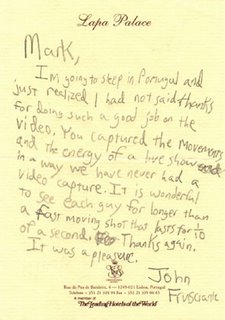 Lapa Palace
Mark,
I'm going to sleep in Portugal and
just realized I had not said thanks
for doing such a good job on the
video. You captured the movements
and the energy of a live show
in a way we have never had a
video capture. It is wonderful
to see each guy for longer than
a fast moving shot that lasts for 1/10
of a second. Thanks again.
It was a pleasure.
John
Frusciante
Rua do Pau de Bandeira, 4 - 1249-021 Lisboa, Portugal
a member of
The Leading Hotels of the World